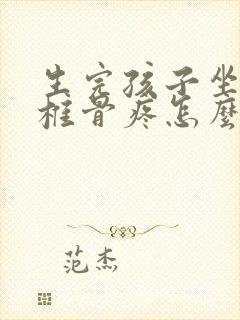 生完孩子坐
椎骨疼怎麼
范杰